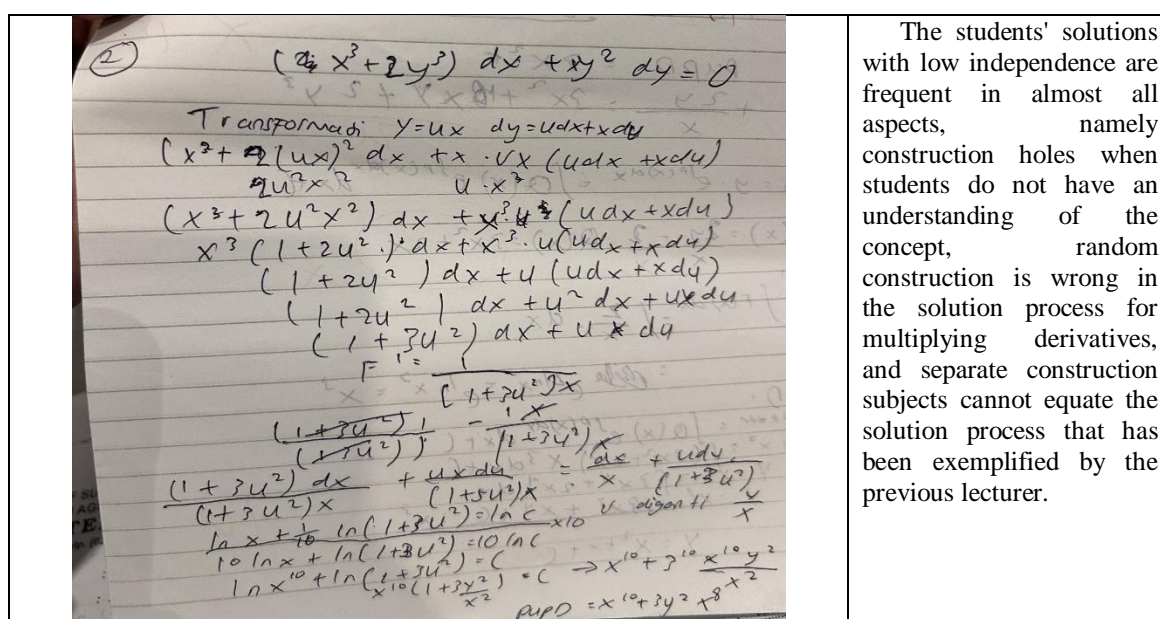 2
( x³ + 2y³ ) dx + xy² dy = 0
Transformasi y = ux dy = udx + xdu
( x³ + 2(ux)² dx + x · ux (udx + xdu)
2u²x² u · x²
( x³ + 2u²x² ) dx + (udx + xdu)
x³ ( 1 + 2u² ) dx + x³ · u(udx + xdu)
( 1 + 2u² ) dx + u (udx + xdu)
( 1 + 2u² ) dx + u² dx + ux du
( 1 + 3u² ) dx + u x du
F = 1 / (1 + 3u²)x
(1 + 3u²) 1 / (1 + 3u²) - 1 x / (1 + 3u²) x
(1 + 3u²) dx / (1 + 3u²) x + ux du / (1 + 3u²) x = dx / x + udu / (1 + 3u²)
ln x + 1/10 ln (1 + 3u²) = ln c x10 u diganti y/x
10 ln x + ln (1 + 3u²) = 10 ln c
ln x¹⁰ + ln (1 + 3u²) = c
x¹⁰ (1 + 3y²/x²) = c ⇒ x¹⁰ + 3¹⁰ x¹⁰y²/x²
PUPD = x¹⁰ + 3y² x⁸
The students' solutions
with low independence are
frequent in almost all
aspects, namely
construction holes when
students do not have an
understanding of the
concept, random
construction is wrong in
the solution process for
multiplying derivatives,
and separate construction
subjects cannot equate the
solution process that has
been exemplified by the
previous lecturer.